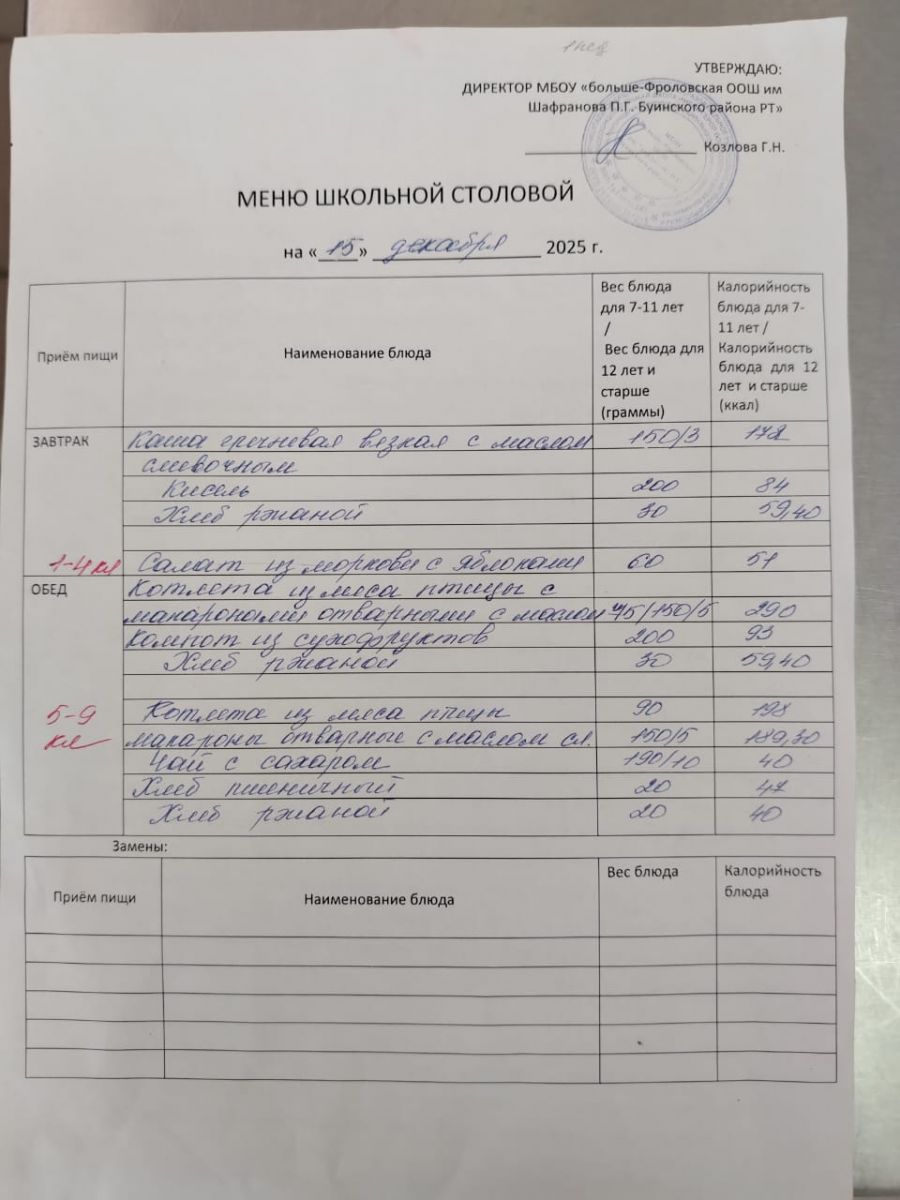 1 нед
УТВЕРЖДАЮ:
ДИРЕКТОР МБОУ «больше-Фроловская ООШ им
Шафранова П.Г. Буинского района РТ»
Козлова Г.Н.
МЕНЮ ШКОЛЬНОЙ СТОЛОВОЙ
на «15» декабря 2025 г.
Приём пищи
Наименование блюда
Вес блюда
для 7-11 лет
/
Вес блюда для
12 лет и
старше
(граммы)
Калорийность
блюда для 7-
11 лет /
Калорийность
блюда для 12
лет и старше
(ккал)
ЗАВТРАК Каша гречневая вязкая с маслом 150/3 172
сливочным
Кисель 200 84
Хлеб ржаной 30 59,40
1-4 кл Салат из моркови с яблоками 60 51
ОБЕД Котлета из мяса птицы с
макаронами отварными с маслом 45/150/5 290
Компот из сухофруктов 200 93
Хлеб ржаной 30 59,40
5-9 Котлета из мяса птицы 90 198
кл макароны отварные с маслом сл. 150/5 189,30
Чай с сахаром 190/10 40
Хлеб пшеничный 20 47
Хлеб ржаной 20 40
Замены:
Приём пищи Наименование блюда Вес блюда Калорийность
блюда